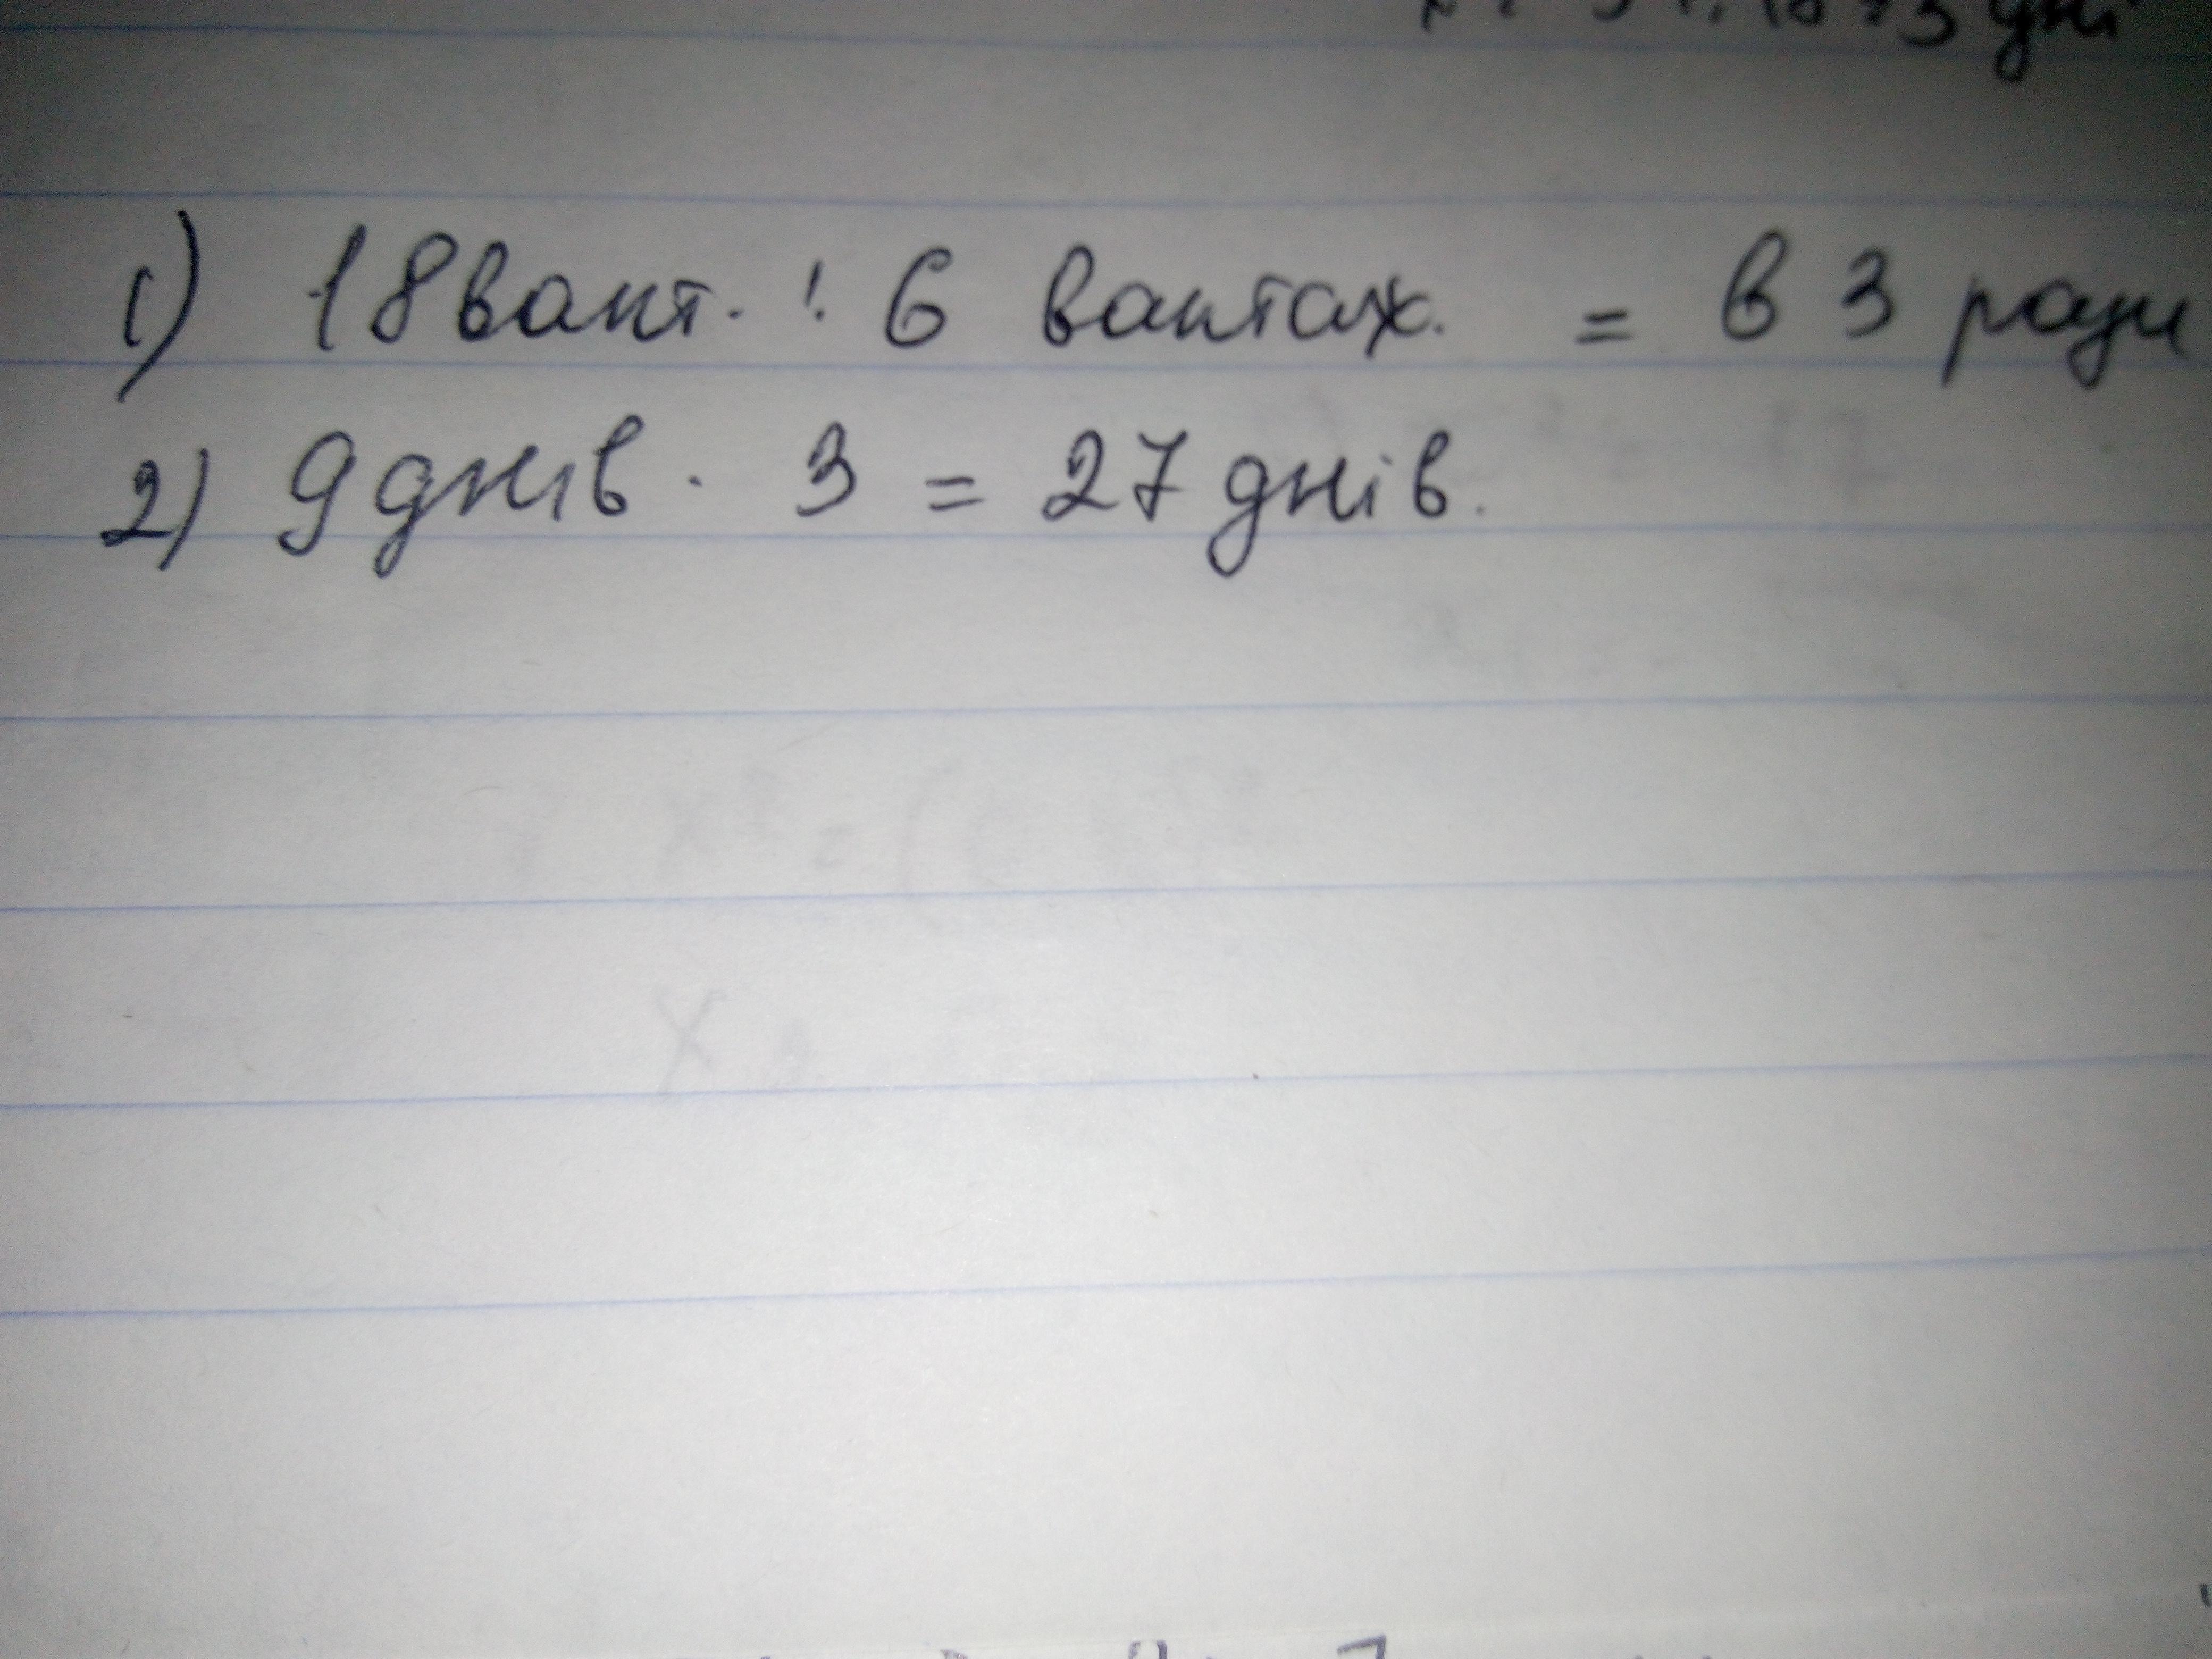 3 дні
1) 18 вант. : 6 вантаж. = в 3 рази
2) 9 днів · 3 = 27 днів.